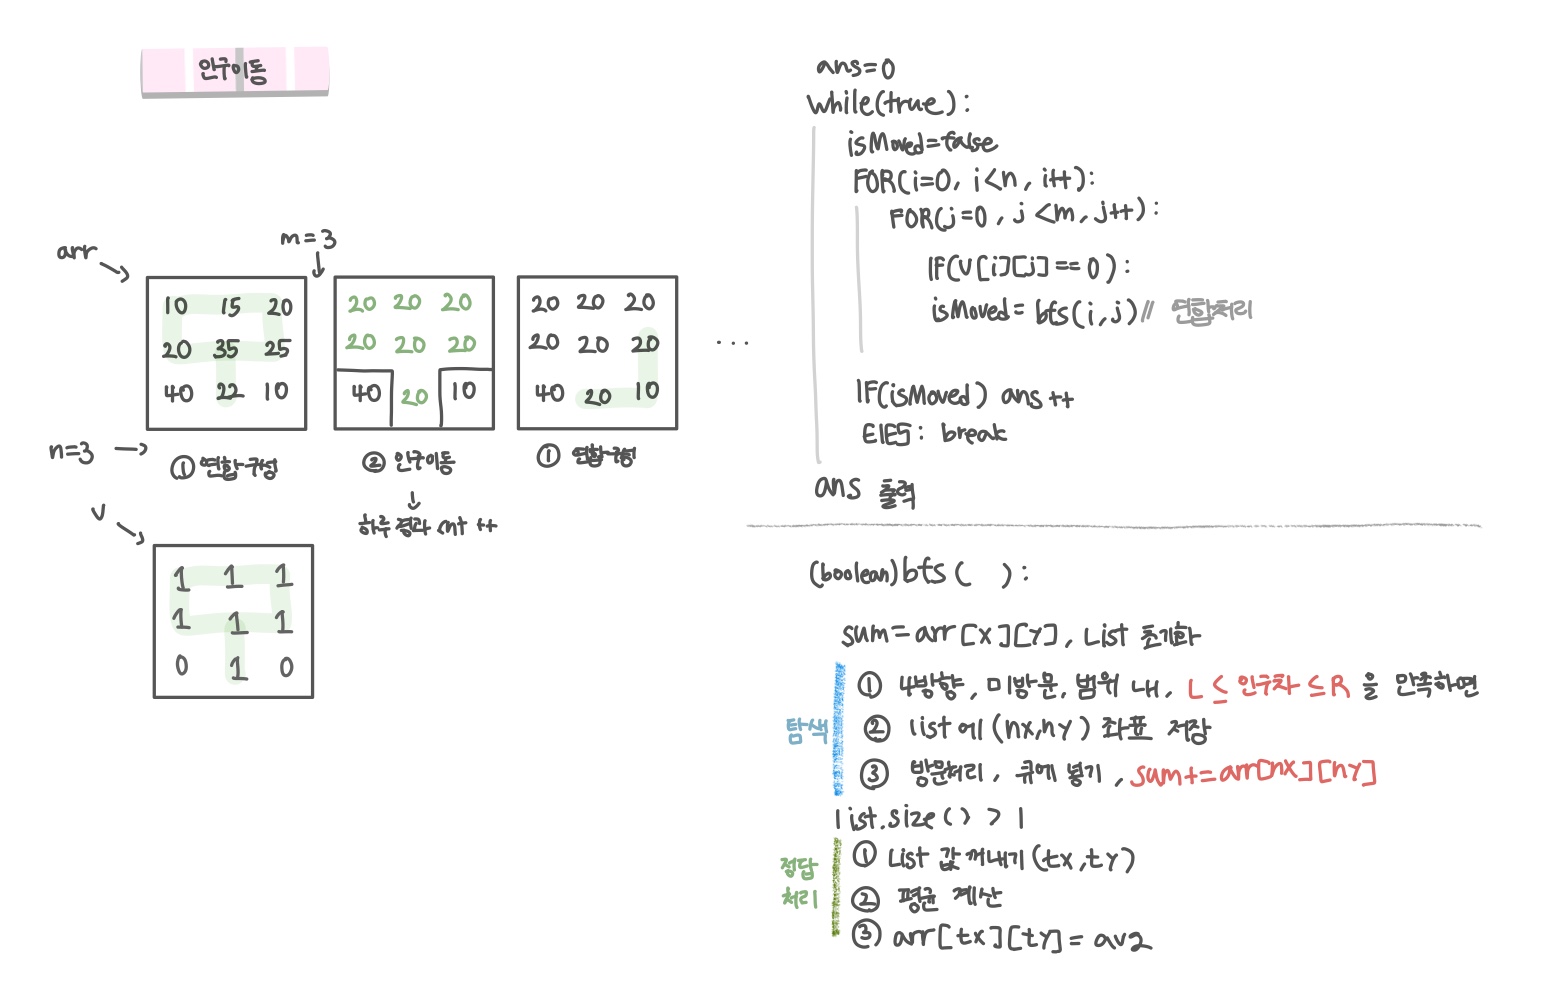 인구이동
arr
m=3
10 15 20
20 35 25
40 22 10
20 20 20
20 20 20
40 20 10
20 20 20
20 20 20
40 20 10
...
n=3
① 연합구성
② 인구이동
① 연합구성
하루 경과 cnt ++
v
1 1 1
1 1 1
0 1 0
ans=0
while(true):
isMoved=false
FOR(i=0, i<n, i++):
FOR(j=0, j<m, j++):
IF(V[i][j]==0):
isMoved= bfs(i,j)// 연합처리
IF(isMoved) ans++
ElES: break
ans 출력
(boolean)bfs( ):
sum=arr[x][y], List 초기화
탐색
① 4방향, 미방문, 범위 내, L ≤ 인구차 ≤ R 을 만족하면
② list에(nx,ny) 좌표 저장
③ 방문처리, 큐에 넣기, sum+=arr[nx][ny]
list.size() > 1
정답
처리
① List 값 꺼내기(tx,ty)
② 평균 계산
③ arr[tx][ty]= avg